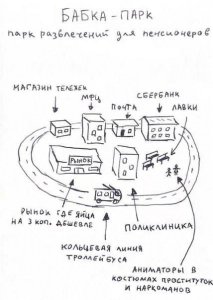 БАБКА-ПАРК
парк развлечений для пенсионеров
МАГАЗИН ТЕЛЕЖЕК
МФЦ
ПОЧТА
СБЕРБАНК
ЛАВКИ
РЫНОК
РЫНОК ГДЕ ЯЙЦА
НА 3 КОП. ДЕШЕВЛЕ
ПОЛИКЛИНИКА
КОЛЬЦЕВАЯ ЛИНИЯ
ТРОЛЛЕЙБУСА
АНИМАТОРЫ В
КОСТЮМАХ ПРОСТИТУТОК
И НАРКОМАНОВ